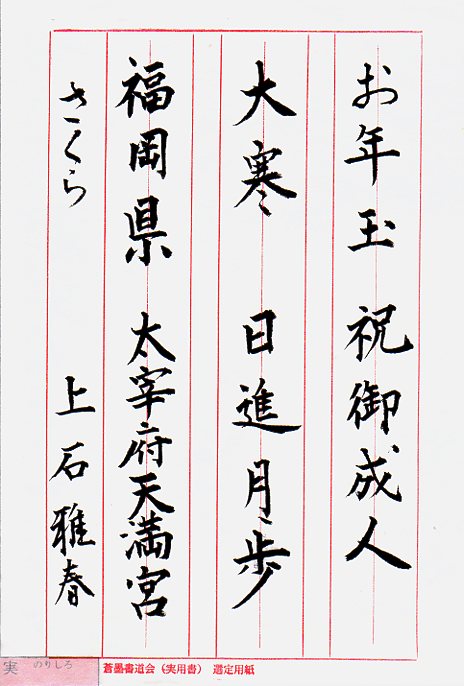 お年玉　祝御成人
大寒　日進月歩
福岡県　太宰府天満宮
さくら　上石雅春
実　のりしろ
蒼墨書道会（実用書）　選定用紙